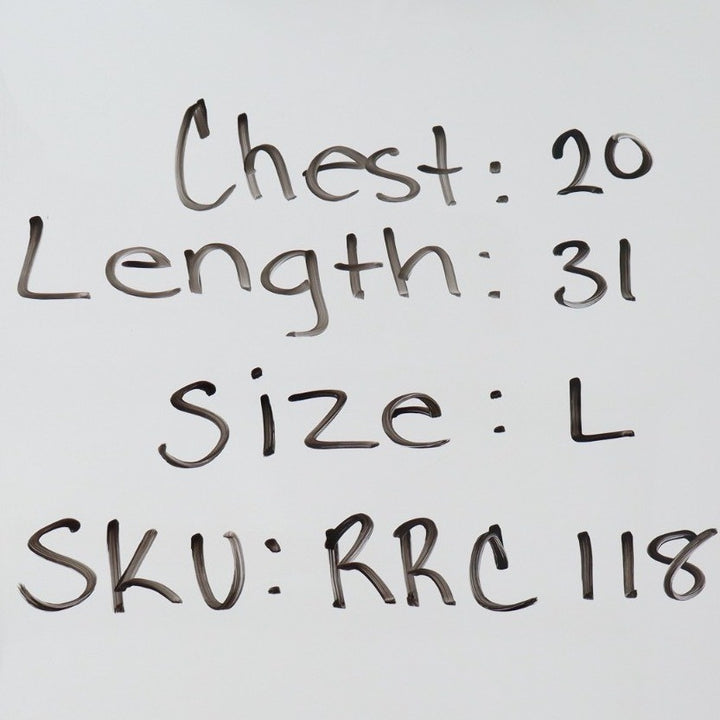 Chest: 20
Length: 31
Size: L
SKU: RRC 118